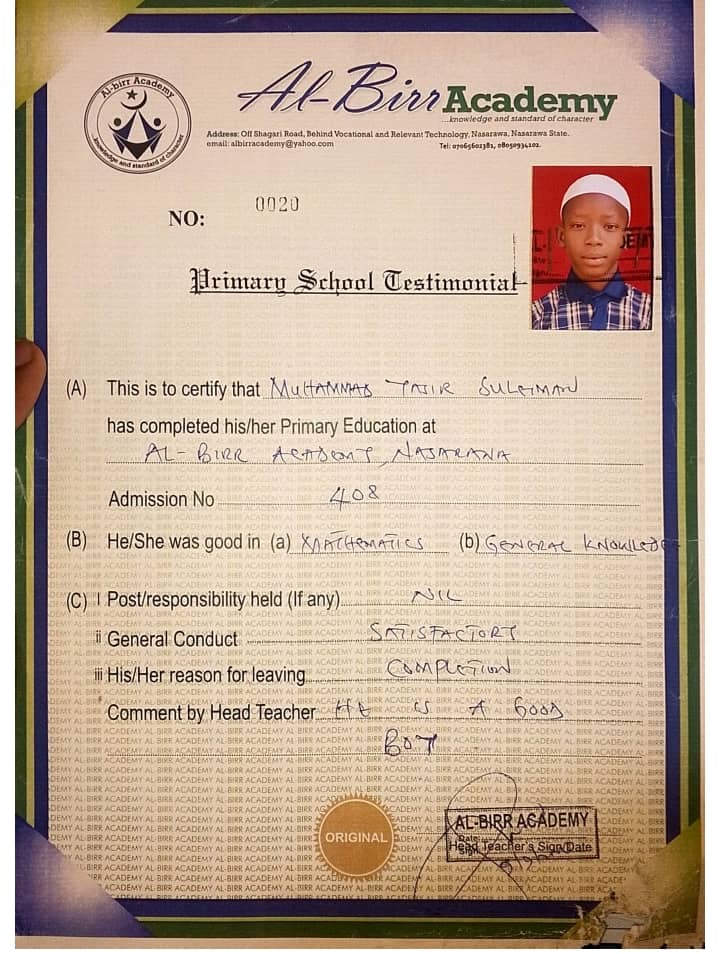 Al-birr Academy
...knowledge and standard of character
Al-Birr Academy
...knowledge and standard of character
Address: Off Shagari Road, Behind Vocational and Relevant Technology, Nasarawa, Nasarawa State.
email: albirracademy@yahoo.com Tel: 07065602381, 08050934202.
NO: 0020
Primary School Testimonial
(A) This is to certify that MUHAMMAD YASIR SULEIMAN
has completed his/her Primary Education at
AL-BIRR ACADEMY, NASARAWA
Admission No 408
(B) He/She was good in (a) MATHEMATICS (b) GENERAL KNOWLEDGE
(C) I Post/responsibility held (If any) NIL
ii General Conduct SATISFACTORY
iii His/Her reason for leaving COMPLETION
Comment by Head Teacher HE IS A GOOD
BOY
ORIGINAL
AL-BIRR ACADEMY
Date
Sign
Head Teacher's Sign/Date